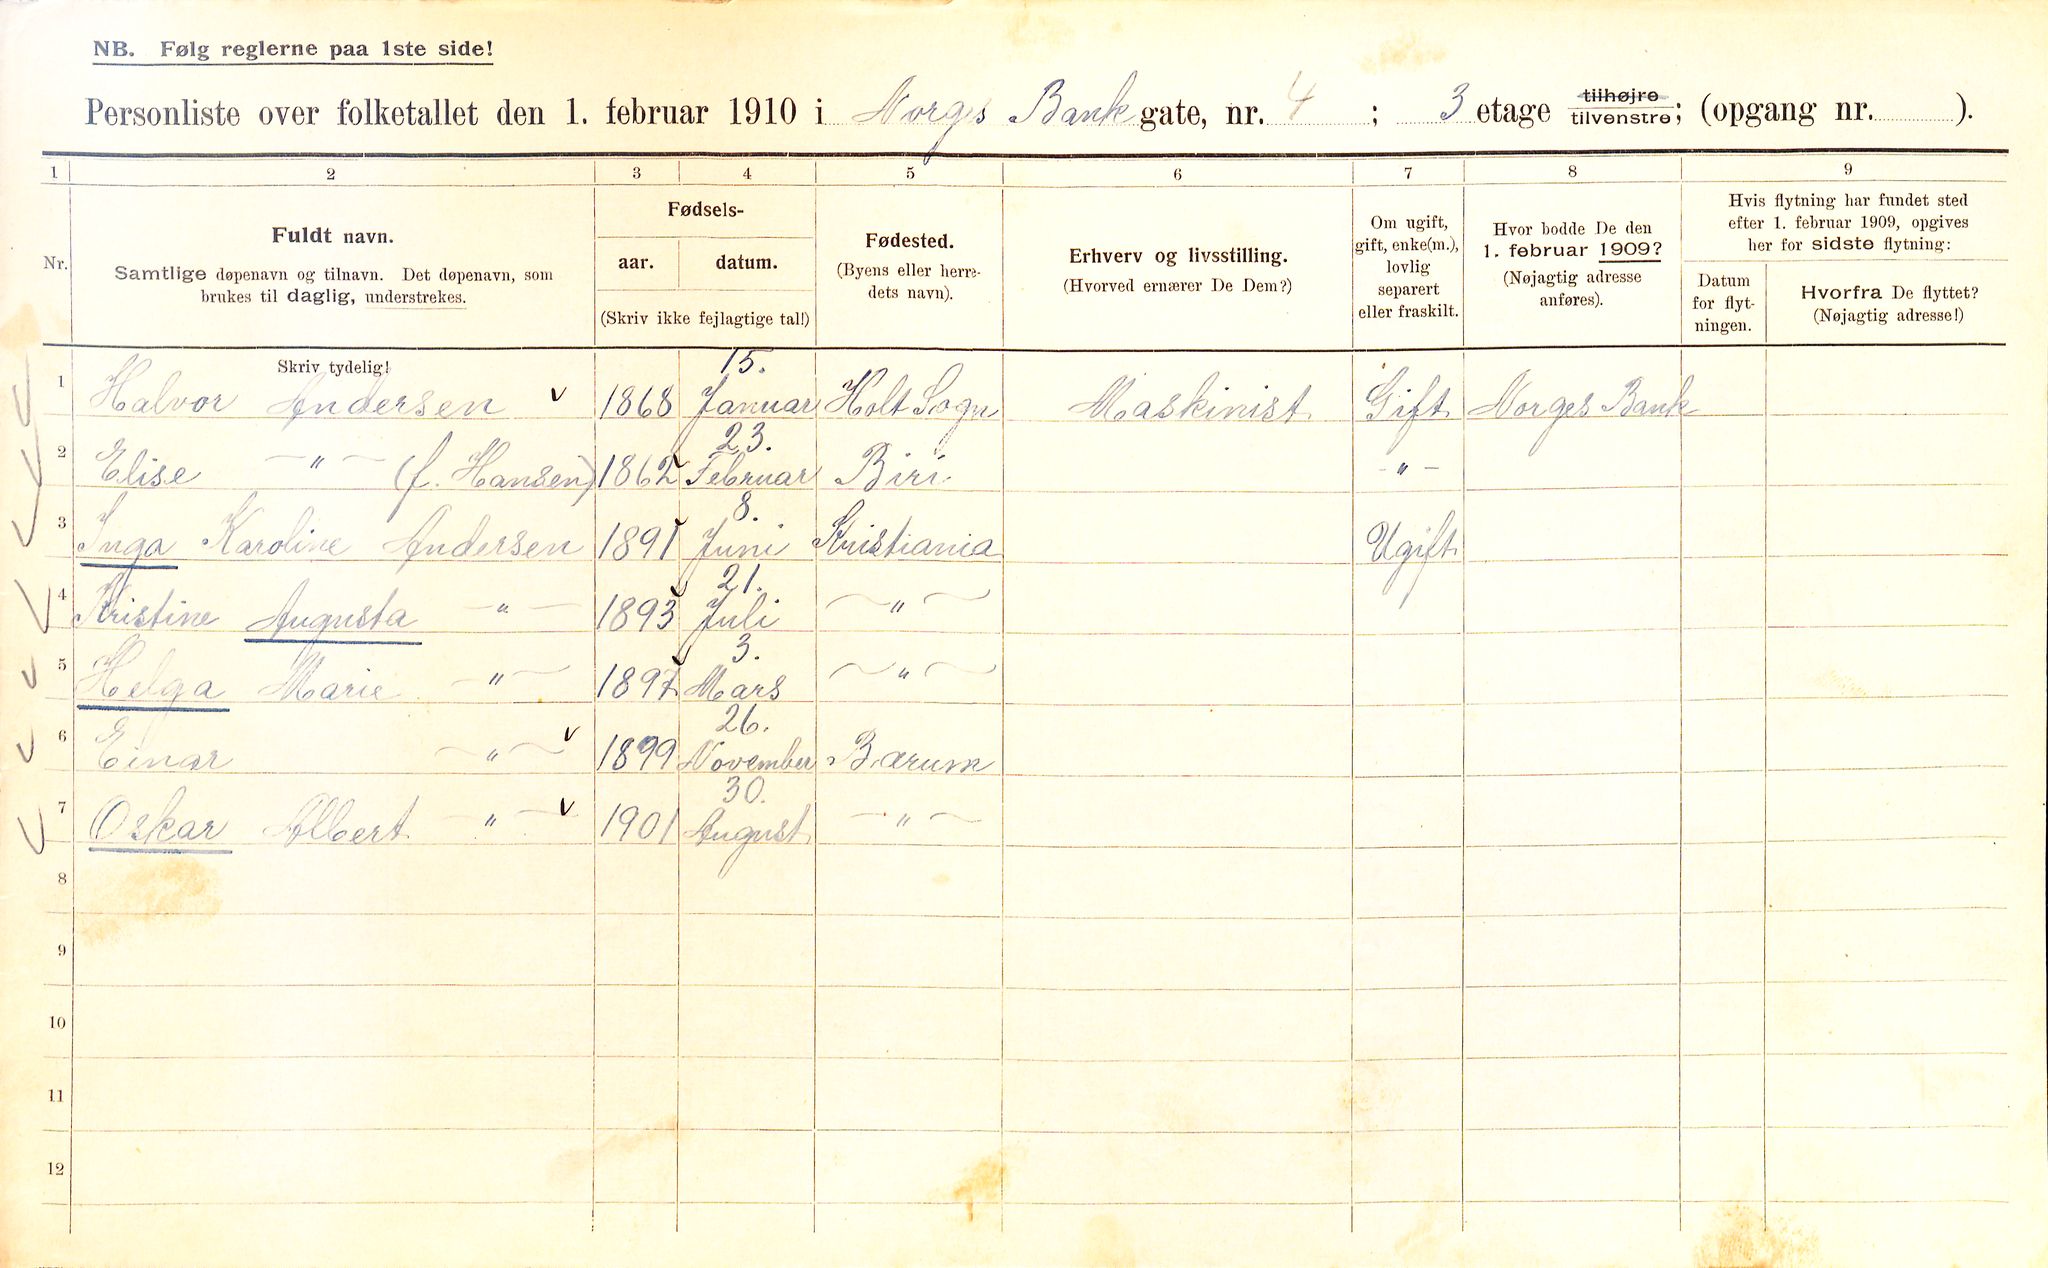 NB. Følg reglerne paa 1ste side!
Personliste over folketallet den 1. februar 1910 i Norges Bank gate, nr. 4 ; 3 etage tilhøjre tilvenstre; (opgang nr. ).
1 2 3 4 5 6 7 8 9
Nr.
Fuldt navn.
Samtlige døpenavn og tilnavn. Det døpenavn, som
brukes til daglig, understrekes.
Fødsels-
aar. datum.
(Skriv ikke fejlagtige tal!)
Fødested.
(Byens eller herre-
dets navn).
Erhverv og livsstilling.
(Hvorved ernærer De Dem?)
Om ugift,
gift, enke(m.),
lovlig
separert
eller fraskilt.
Hvor bodde De den
1. februar 1909?
(Nøjagtig adresse
anføres).
Hvis flytning har fundet sted
efter 1. februar 1909, opgives
her for sidste flytning:
Datum
for flyt-
ningen.
Hvorfra De flyttet?
(Nøjagtig adresse!)
Skriv tydelig!
1 Halvor Andersen 1868 15. Januar Holt Sogn Maskinist Gift Norges Bank
2 Elise -"- (f. Hansen) 1862 23. Februar Biri -"-
3 Inga Karoline Andersen 1891 8. Juni Kristiania Ugift
4 Kristine Augusta -"- 1893 21. Juli -"-
5 Helga Marie -"- 1897 3. Mars -"-
6 Einar -"- 1899 26. November Bærum
7 Oskar Albert -"- 1901 30. August -"-
8
9
10
11
12